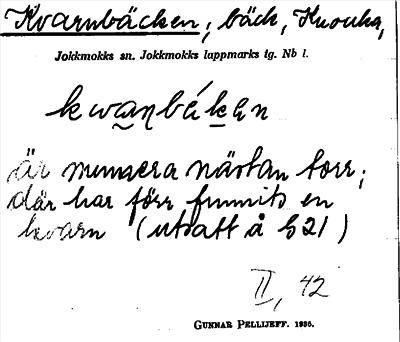 Kvarnbäcken, bäck, Knouka,
Jokkmokks sn. Jokkmokks lappmarks tg. Nb l.
kwaṉbékan
är numera nästan torr;
där har förr funnits en
kvarn (utsatt å § 21)
II, 42
GUNNAR PELLIJEFF. 1936.